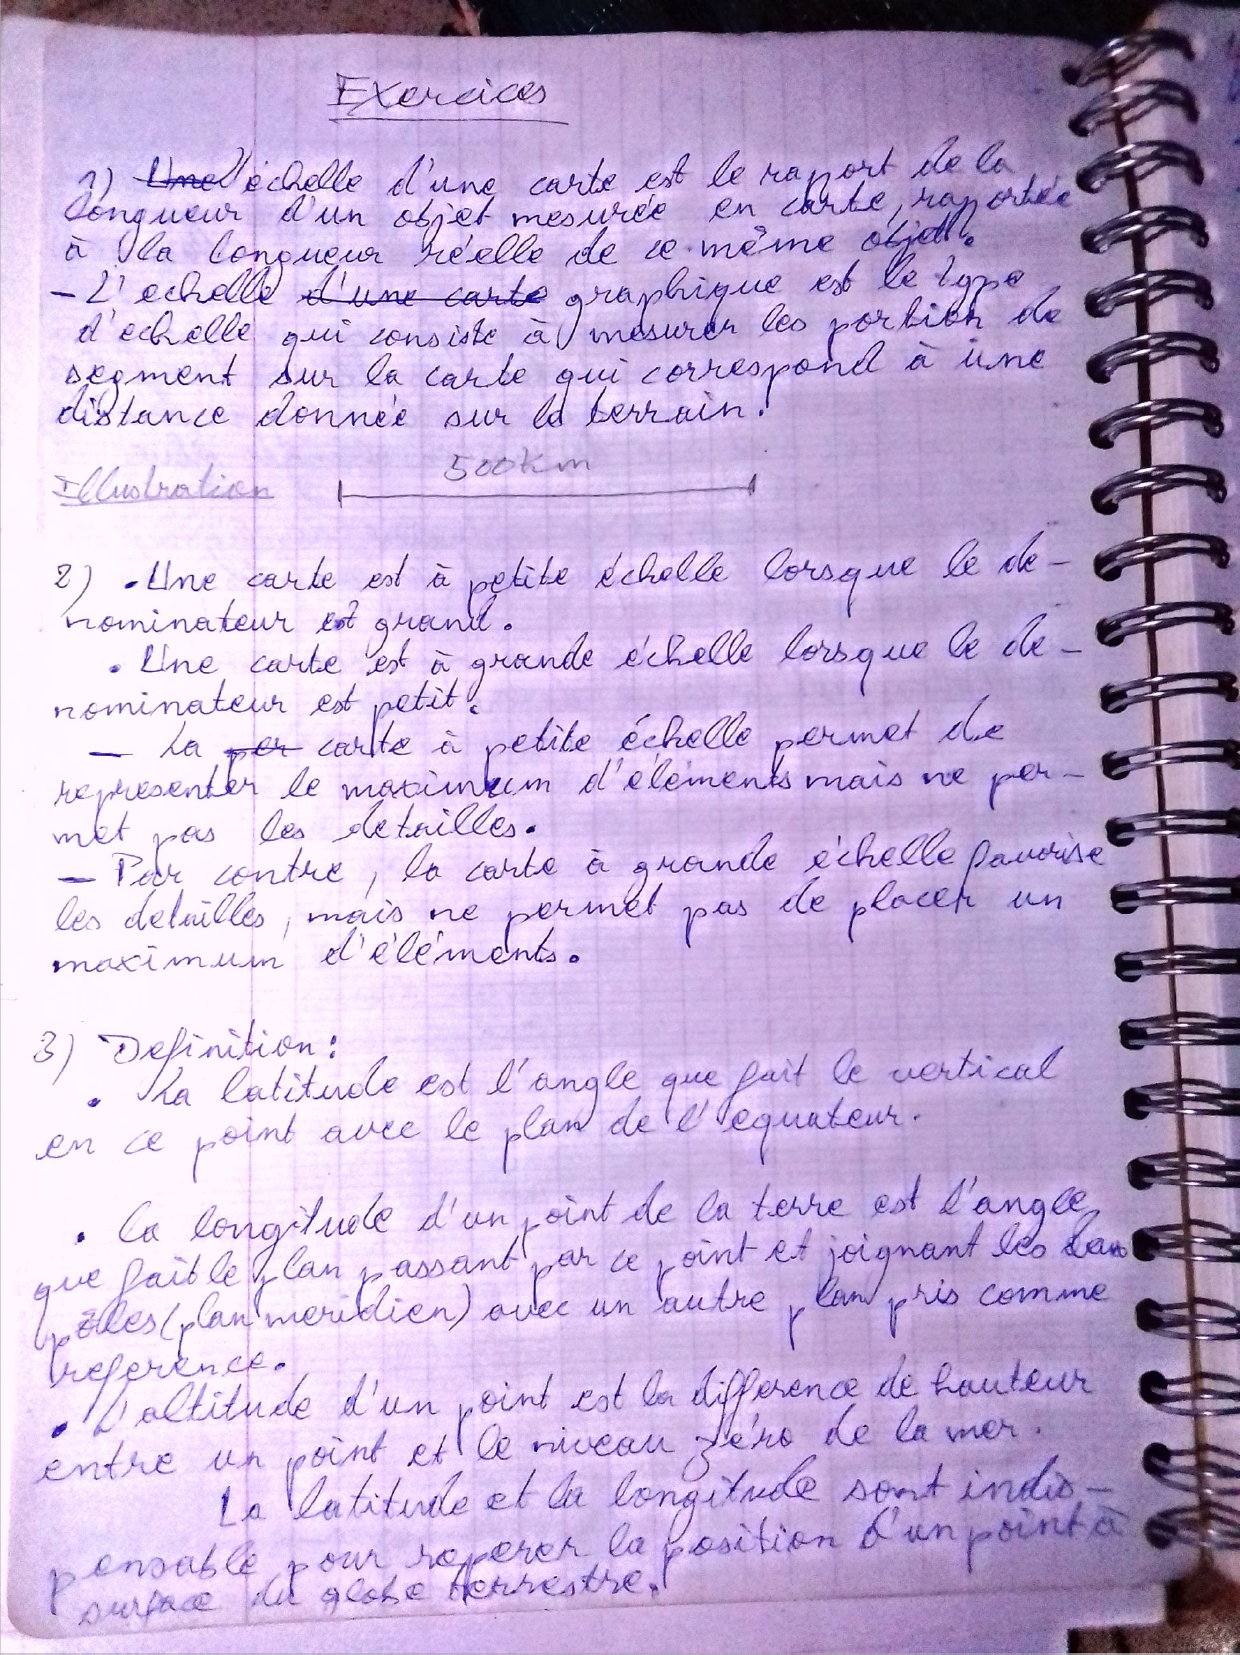 Exercices
1) Une l'échelle d'une carte est le raport de la
longueur d'un objet mesurée en carte, raportée
à la longueur réelle de ce même objet.
- L'echelle d'une carte graphique est le type
d'echelle qui consiste à mesurer les portion de
segment sur la carte qui correspond à une
distance donnée sur le terrain.
500 km
Illustration
2) • Une carte est à petite échelle lorsque le de-
nominateur est grand.
• Une carte est à grande échelle lorsque le dé-
nominateur est petit.
- La per carte à petite échelle permet de
representer le maximum d'éléments mais ne per-
met pas les detailles.
- Par contre, la carte à grande échelle favorise
les detailles, mais ne permet pas de placer un
maximum d'éléments.
3) Definition :
• La latitude est l'angle que fait le vertical
en ce point avec le plan de l'equateur.
• La longitude d'un point de la terre est l'angle
que fait le plan passant par ce point et joignant les
pôles (plan meridien) avec un autre plan pris comme
reference.
• L'altitude d'un point est la difference de hauteur
entre un point et le niveau zéro de la mer.
La latitude et la longitude sont indis-
pensable pour reperer la position d'un point à
surface du globe terrestre.